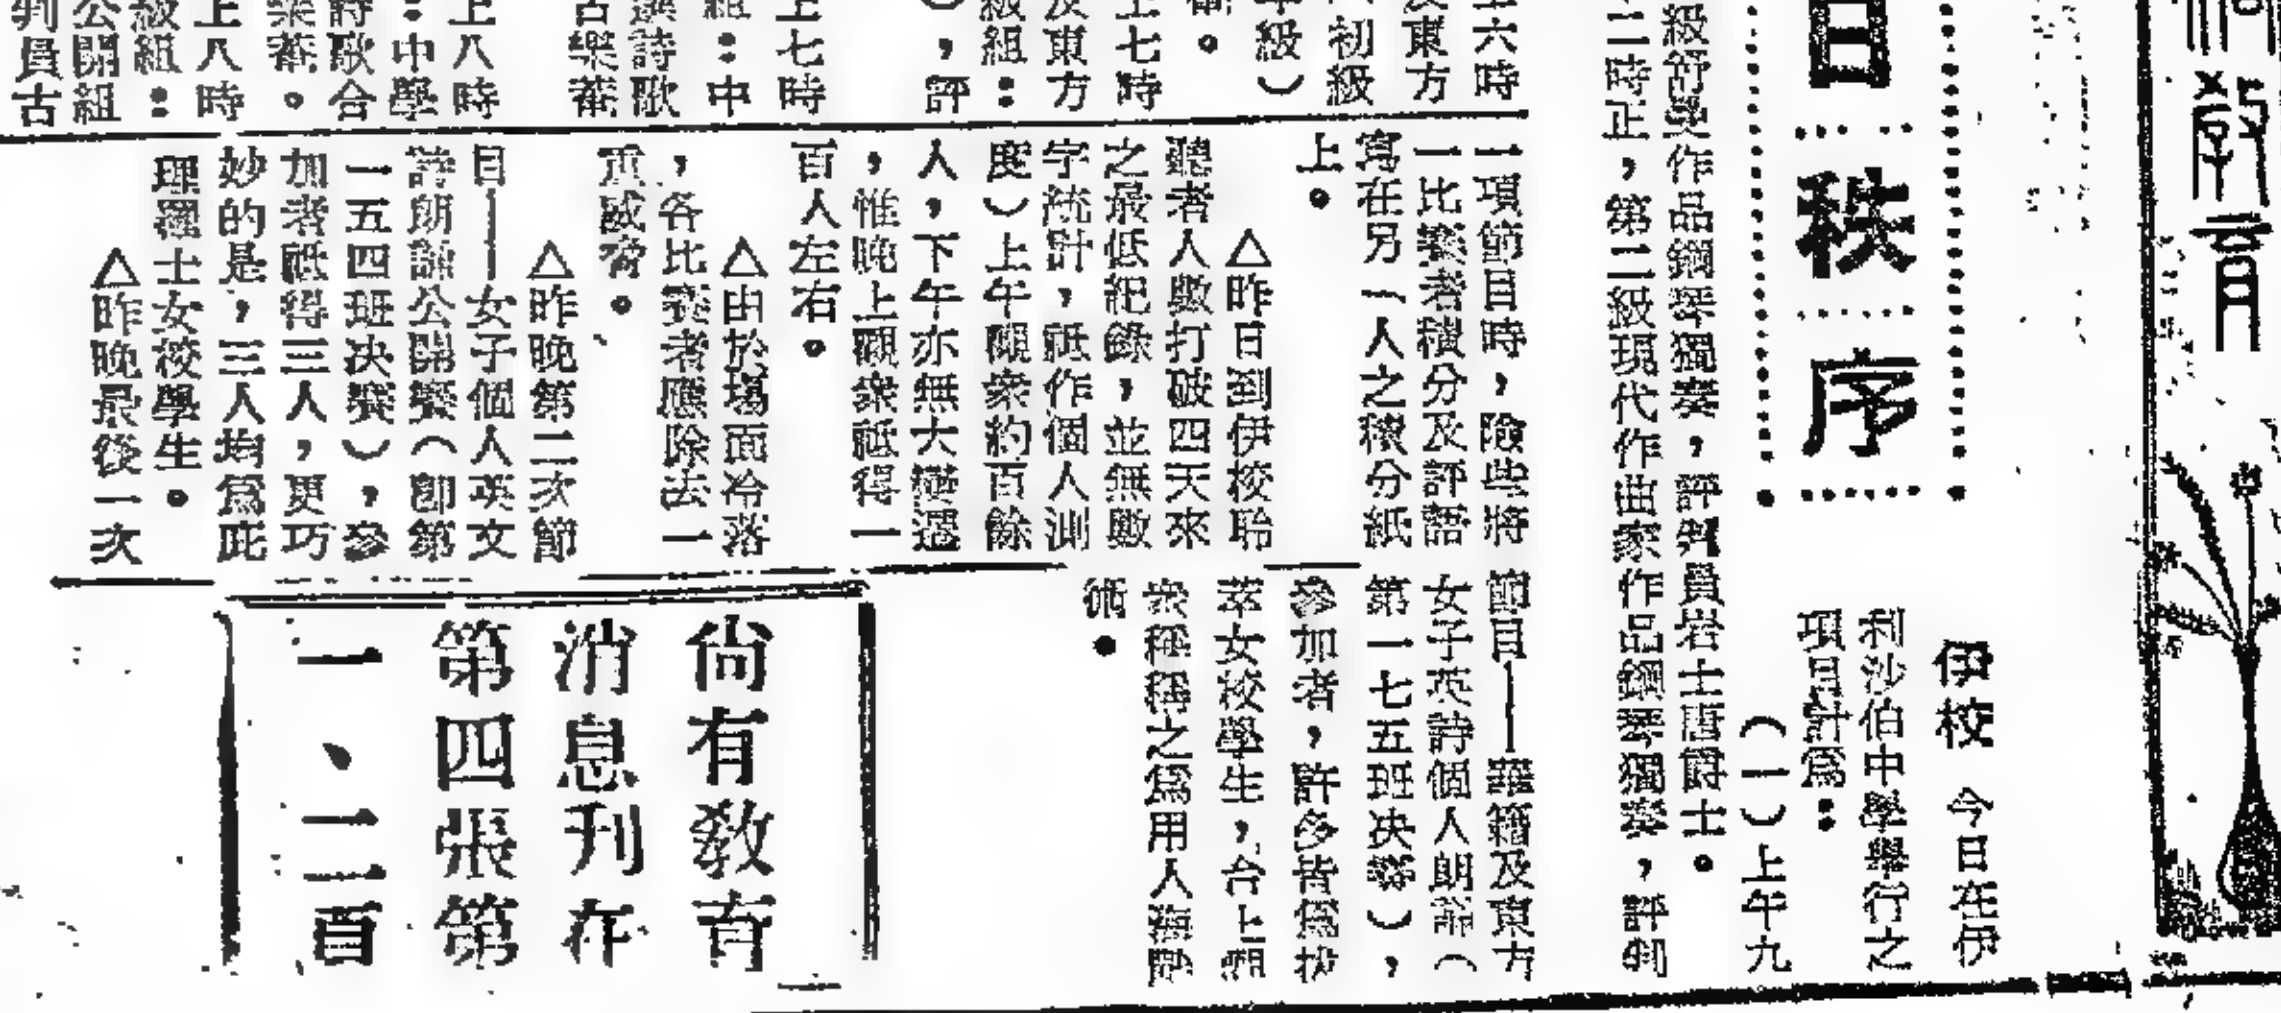 教育
日秩序
伊校 今日在伊
利沙伯中學舉行之
項目計爲：
（一）上午九
級舒曼作品鋼琴獨奏，評判員岩士唐爵士。
二時正，第二級現代作曲家作品鋼琴獨奏，評判
上六時
及東方
初級
年級）
上七時
及東方
級組：
），評
上七時
組：中
詩歌
古樂菴
上八時
：中學
詩歌合
樂菴。
上八時
級組：
公開組
判員古
一項節目時，險些將
一比賽者積分及評語
寫在另一人之積分紙
上。
△昨日到伊校聆
聽者人數打破四天來
之最低紀錄，並無數
字統計，祗作個人測
度）上午觀衆約百餘
人，下午亦無大變遷
，惟晚上觀衆祗得一
百人左右。
△由於場面冷落
，各比賽者應除去一
重威脅。
△昨晚第二次節
目——女子個人英文
詩朗誦公開賽（即第
一五四班决賽），參
加者祗得三人，更巧
妙的是，三人均爲庇
理羅士女校學生。
△昨晚最後一次
節目——華籍及東方
女子英詩個人朗誦（
第一七五班决賽），
參加者，許多皆爲拔
萃女校學生，台上觀
衆稱稱之爲用人海戰
術。
尙有敎育
消息刊在
第四張第
一、二頁